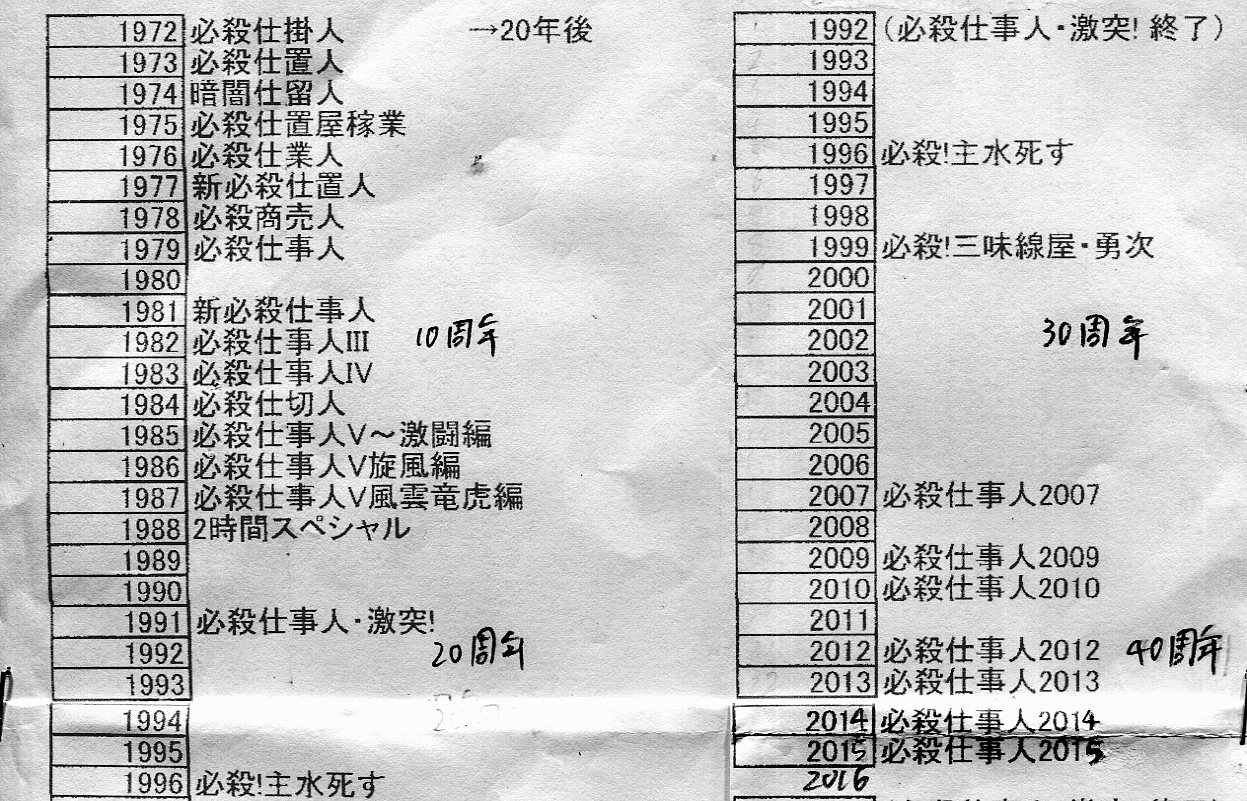 1972 必殺仕掛人 →20年後
1973 必殺仕置人
1974 暗闇仕留人
1975 必殺仕置屋稼業
1976 必殺仕業人
1977 新必殺仕置人
1978 必殺商売人
1979 必殺仕事人
1980
1981 新必殺仕事人
1982 必殺仕事人III 10周年
1983 必殺仕事人IV
1984 必殺仕切人
1985 必殺仕事人V～激闘編
1986 必殺仕事人V旋風編
1987 必殺仕事人V風雲竜虎編
1988 2時間スペシャル
1989
1990
1991 必殺仕事人・激突!
1992 20周年
1993
1994
1995
1996 必殺!主水死す
1992 (必殺仕事人・激突! 終了)
1993
1994
1995
1996 必殺!主水死す
1997
1998
1999 必殺!三味線屋・勇次
2000
2001
2002 30周年
2003
2004
2005
2006
2007 必殺仕事人2007
2008
2009 必殺仕事人2009
2010 必殺仕事人2010
2011
2012 必殺仕事人2012 40周年
2013 必殺仕事人2013
2014 必殺仕事人2014
2015 必殺仕事人2015
2016